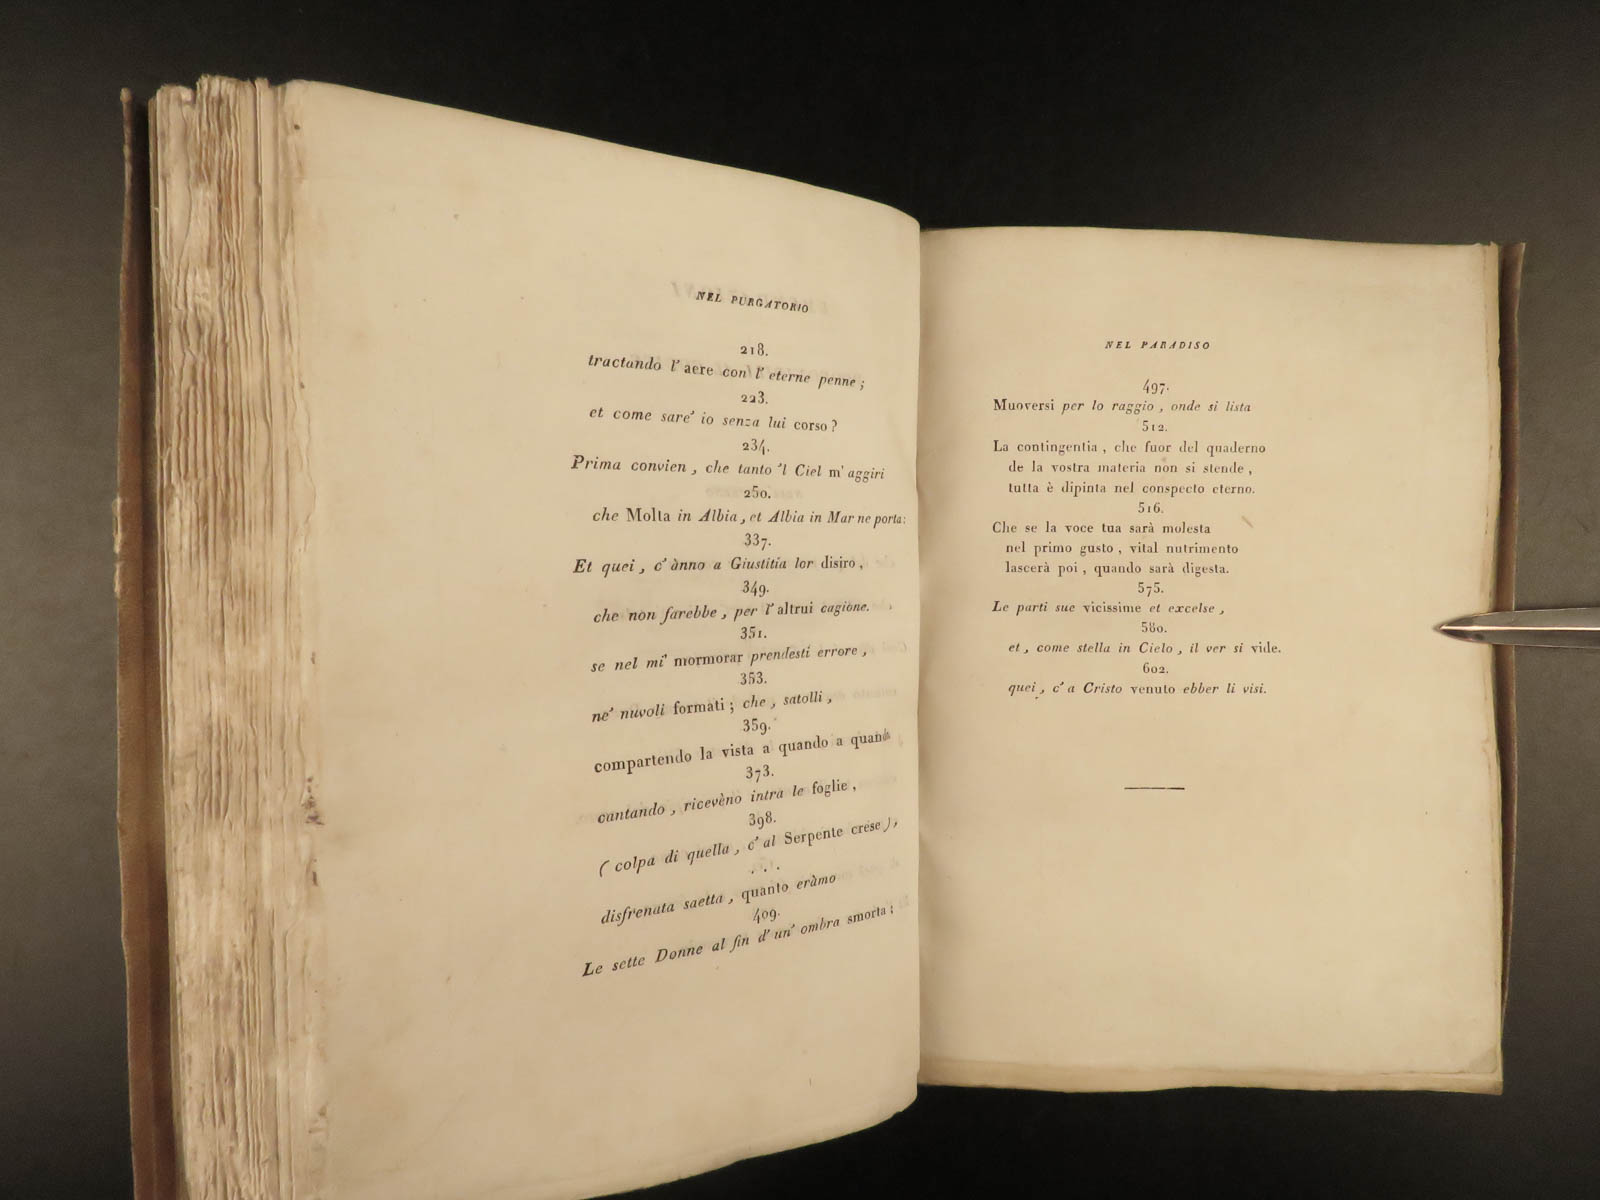 NEL PURGATORIO
218.
tractando l' aere con l' eterne penne ;
223.
et come sare' io senza lui corso ?
234.
Prima convien , che tanto 'l Ciel m' aggiri
250.
che Molta in Albia , et Albia in Mar ne porta :
337.
Et quei , c' ànno a Giustitia lor disiro ,
349.
che non farebbe , per l' altrui cagione .
351.
se nel mi' mormorar prendesti errore ,
353.
ne' nuvoli formati ; che , satolli ,
359.
compartendo la vista a quando a quando
373.
cantando , ricevèno intra le foglie ,
398.
( colpa di quella , c' al Serpente crese ) ,
. . .
disfrenata saetta , quanto eràmo
409.
Le sette Donne al fin d' un' ombra smorta :
NEL PARADISO
497.
Muoversi per lo raggio , onde si lista
512.
La contingentia , che fuor del quaderno
de la vostra materia non si stende ,
tutta è dipinta nel conspecto eterno .
516.
Che se la voce tua sarà molesta
nel primo gusto , vital nutrimento
lascerà poi , quando sarà digesta .
575.
Le parti sue vicissime et excelse ,
580.
et , come stella in Cielo , il ver si vide .
602.
quei , c' a Cristo venuto ebber li visi .